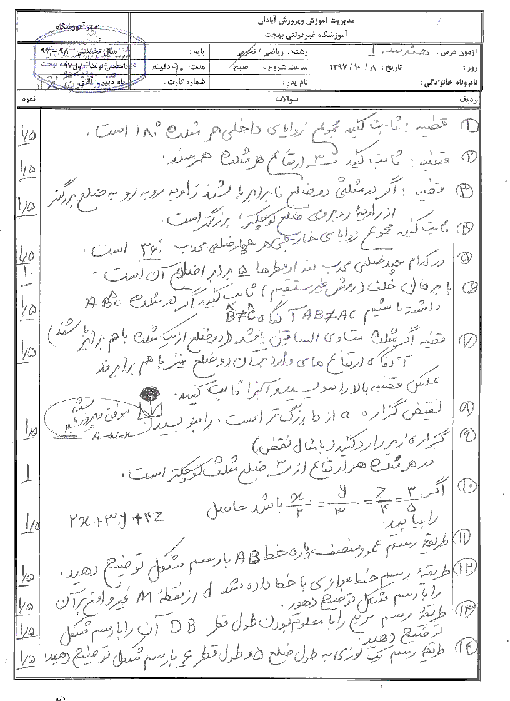 مدیریت آموزش و پرورش آبادان
آموزشگاه غیر دولتی بهجت
آزمون درس: هندسه ۱ رشته: ریاضی فیزیک پایه:
روز: تاریخ: ۱۳۹۷/۱۰/۸ ساعت شروع: صبح مدت: دقیقه
نام و نام خانوادگی: نام پدر: شماره کارت:
ردیف سوالات نمره
۱ قضیه: ثابت کنید مجموع زوایای داخلی هر مثلث ۱۸۰° است. ۱/۵
۲ قضیه: ثابت کنید ۳ ارتفاع هر مثلث همرسند. ۱/۵
۳ قضیه: اگر در مثلثی دو ضلع نابرابر باشند زاویه روبه رو به ضلع بزرگتر
از زاویه روبروی ضلع کوچکتر بزرگتر است. ۱/۵
۴ ثابت کنید مجموع زوایای خارجی هر چهارضلعی محدب ۳۶۰° است. ۱/۵
۵ در کدام چند ضلعی محدب تعداد قطرها ۵ برابر اضلاع آن است. ۱
۶ با برهان خلف (روش غیر مستقیم) ثابت کنید اگر در مثلث ABC
داشته باشیم AB≠AC آنگاه B̂≠Ĉ ۱/۵
۷ قضیه اگر مثلث متساوی الساقین باشد (دو ضلع از یک مثلث باهم برابر باشند)
آنگاه ارتفاع های وارد بر آن دو ضلع نیز با هم برابرند ۱/۵
عکس قضیه بالا را بنویسید آنرا ثابت کنید.
۸ نقیض گزاره a از b بزرگ تر است. را بنویسید ۱/۵
۹ گزاره زیر را رد کنید (با مثال نقض)
در هر مثلث هر ارتفاع از هر ۳ ضلع مثلث کوچکتر است. ۱
۱۰ اگر x/۲ = y/۳ = z/۴ = ۳/۵ باشد حاصل ۲x+۳y+۴z
را بیابید. ۱/۵
۱۱ طریقه رسم عمود منصف پاره خط AB با رسم شکل توضیح دهید. ۱/۵
۱۲ طریقه رسم خط موازی با خط داده شده d از نقطه M غیر واقع بر آن
را با رسم شکل توضیح دهید. ۱/۵
۱۳ طریقه رسم مربع را با معلوم بودن طول قطر DB آن را با رسم شکل
توضیح دهید. ۱/۵
۱۴ طریقه رسم یک لوزی به طول ضلع ۵ و طول قطر ۶ با رسم شکل توضیح دهید ۱/۵